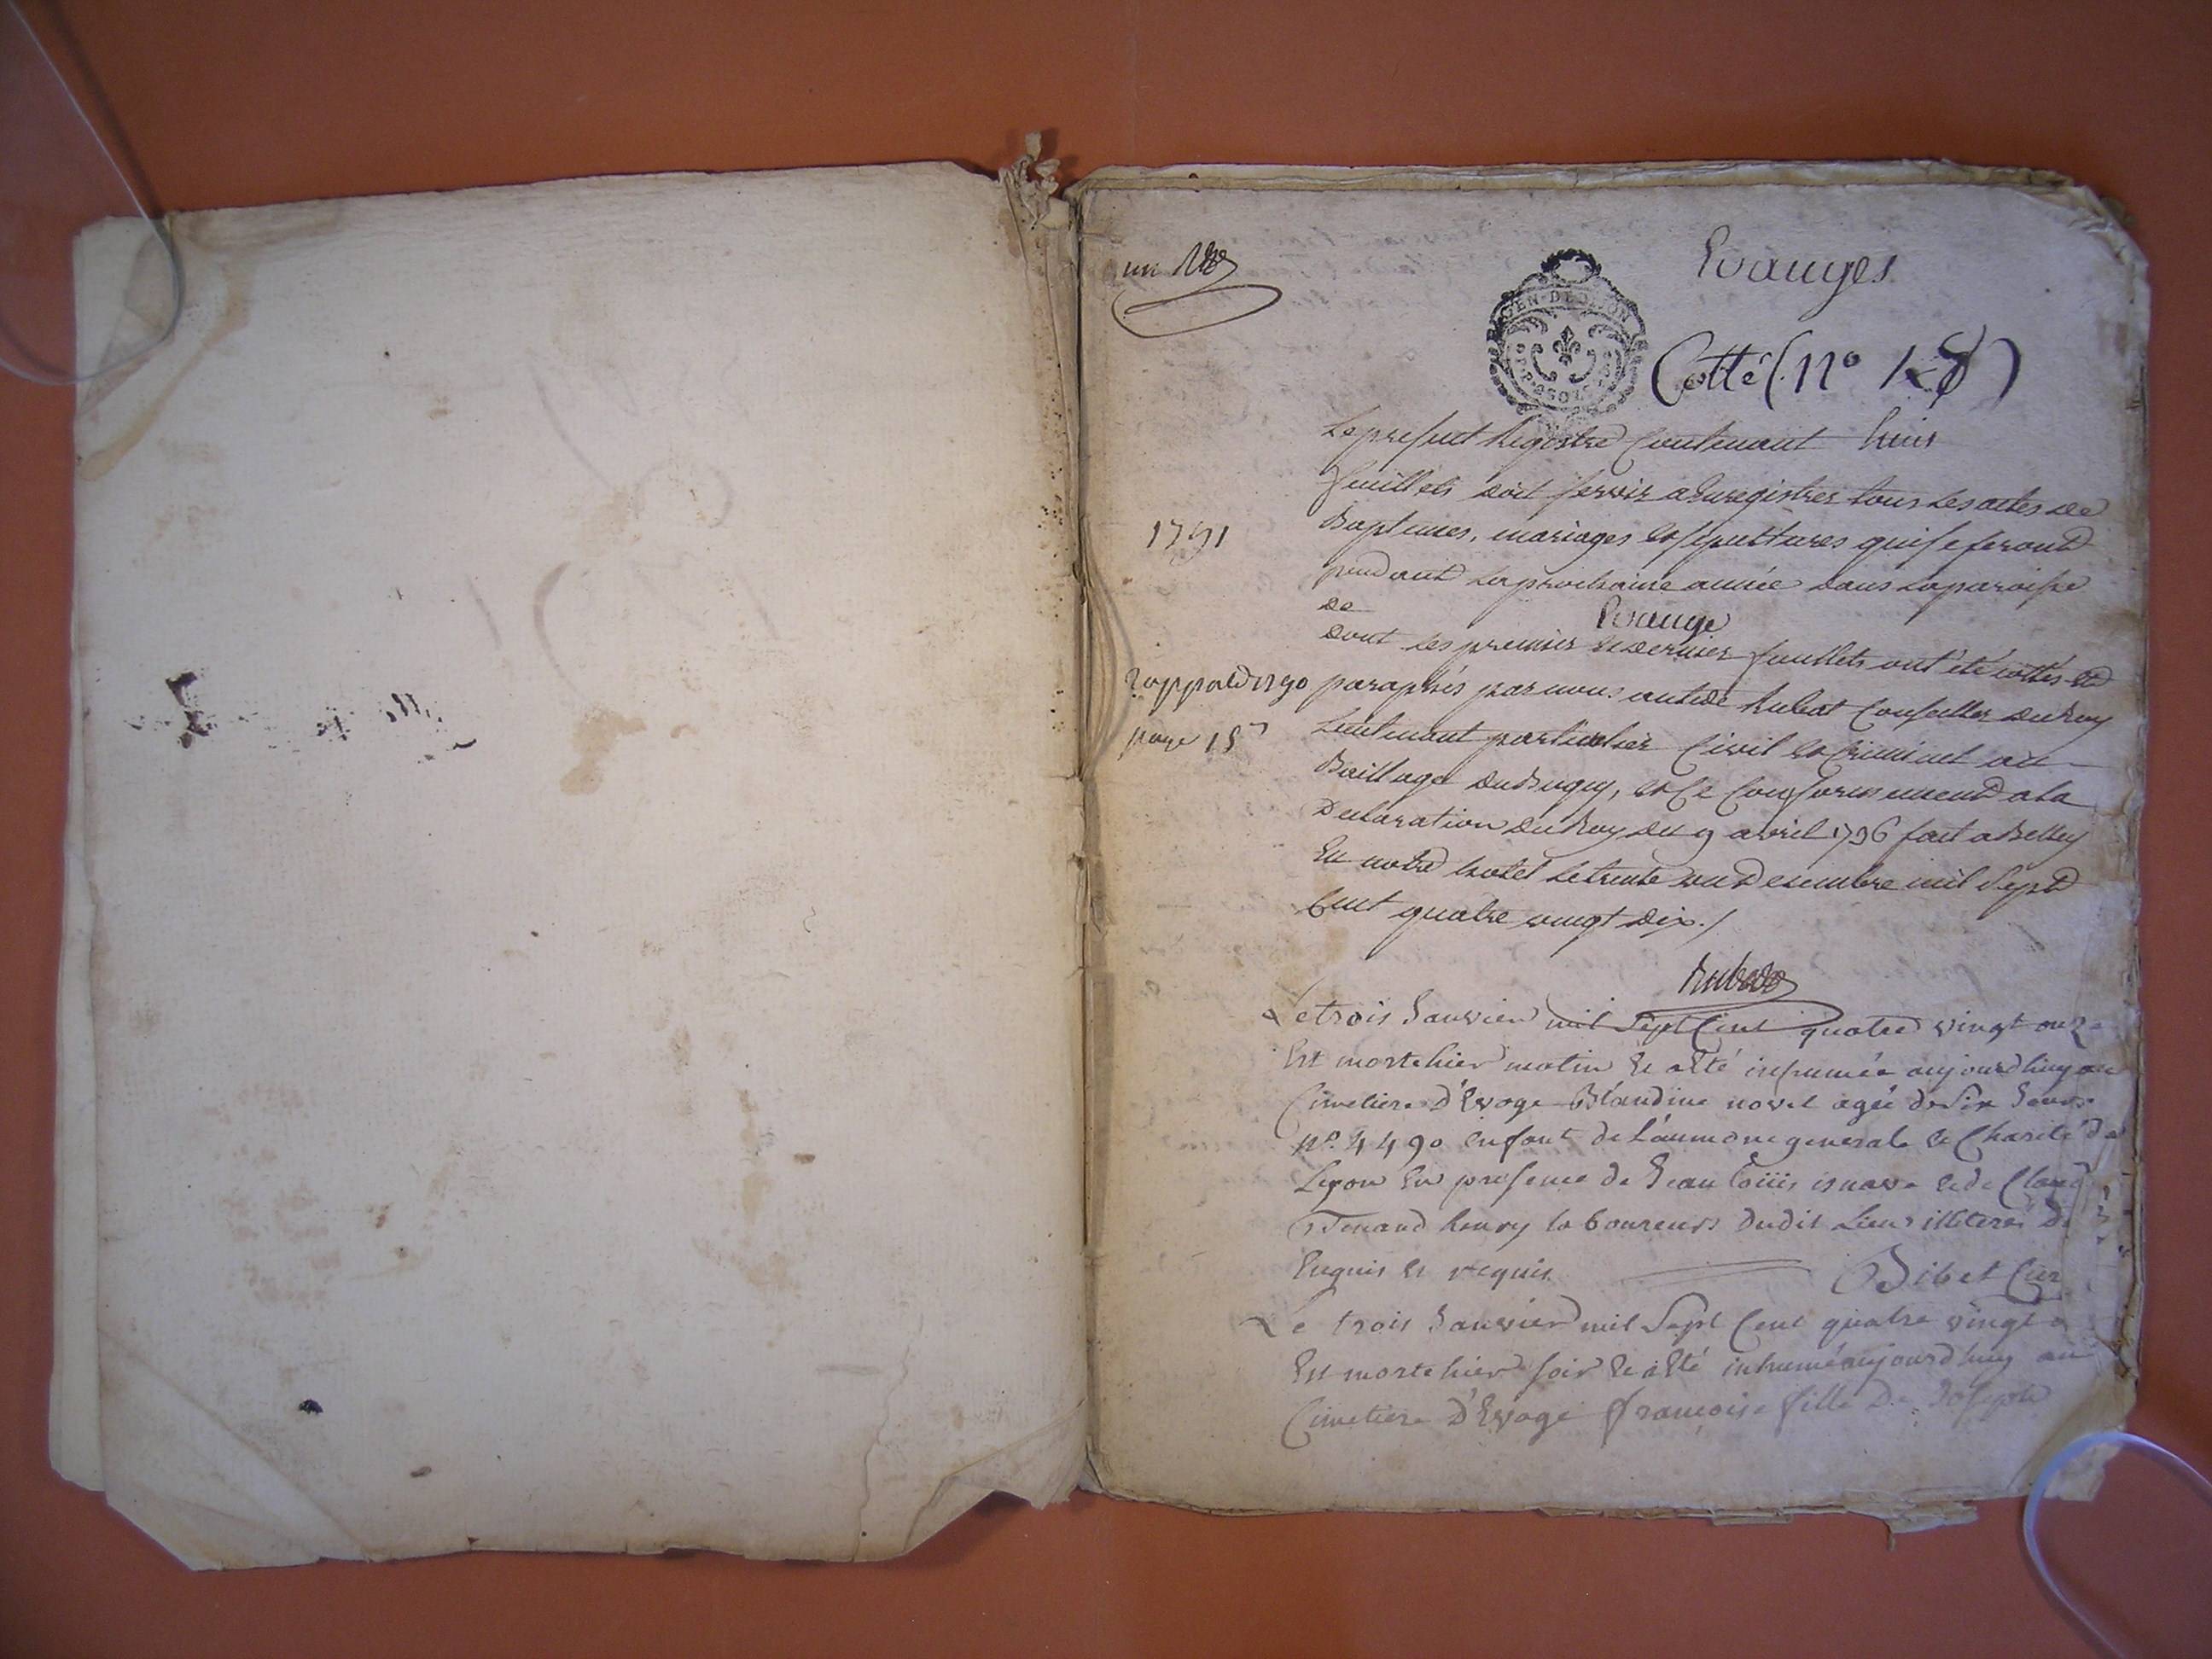 un
Evauges
GEN DE DIJON
Cotté (n° 128)
Le present Registre Contenant huit
feuillets doit servir a Enregistrer tous les actes de
Baptemes, mariages et sepultures qui se feront
1791
pendant la prochaine année dans la paroisse
de Evauge
dont les premier et dernier feuillets ont été cottés et
paraphés par nous antide Rubat Conseiller du Roy
rappald 1790
page 15
Lieutenant particulier Civil et Criminel au
Baillage du Bugey, et Ce Conformement a la
Declaration du Roy du 9 avril 1736 fait a Belley
En notre hotel le trente un Decembre mil Sept
Cent quatre vingt dix./.
Rubat
Le trois Janvier mil Sept Cent quatre vingt onze
Est morte hier matin et a Eté inhumée aujourdhuy au
Cimetiere d'Evoge Blandine novel agée de Six Jours
n°. 4490 enfant de l'aumone generale et Charité de
Lyon En presence de Jean Loüis et de Claude
henry laboureurs dudit Lieu illiterés de
Enquis et requis. Bibet Cur
Le trois Janvier mil Sept Cent quatre vingt o
Est morte hier soir et a Eté inhumé aujourdhuy au
Cimetiere D'Evoge françoise fille De Joseph